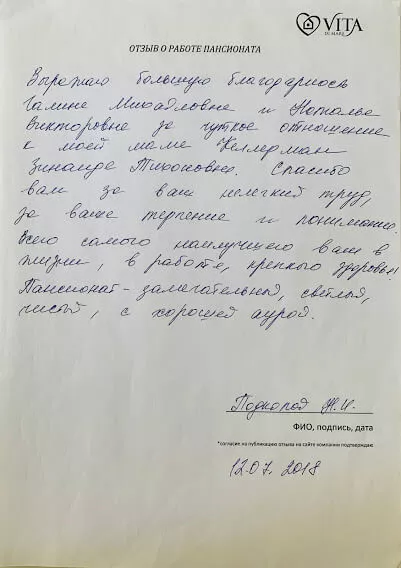 VITA
ОТЗЫВ О РАБОТЕ ПАНСИОНАТА
Выражаю большую благодарность
Галине Михайловне и Наталье
Викторовне за чуткое отношение
к моей маме Келлерман
Зинаиде Тихоновне. Спасибо
вам за ваш нелегкий труд,
за ваше терпение и понимание.
Всего самого наилучшего вам в
жизни, в работе, крепкого здоровья!
Пансионат - замечательный, светлый,
чистый, с хорошей аурой.
Подкопод Н.И.
ФИО, подпись, дата
*согласие на публикацию отзыва на сайте компании подтверждаю
12.07. 2018